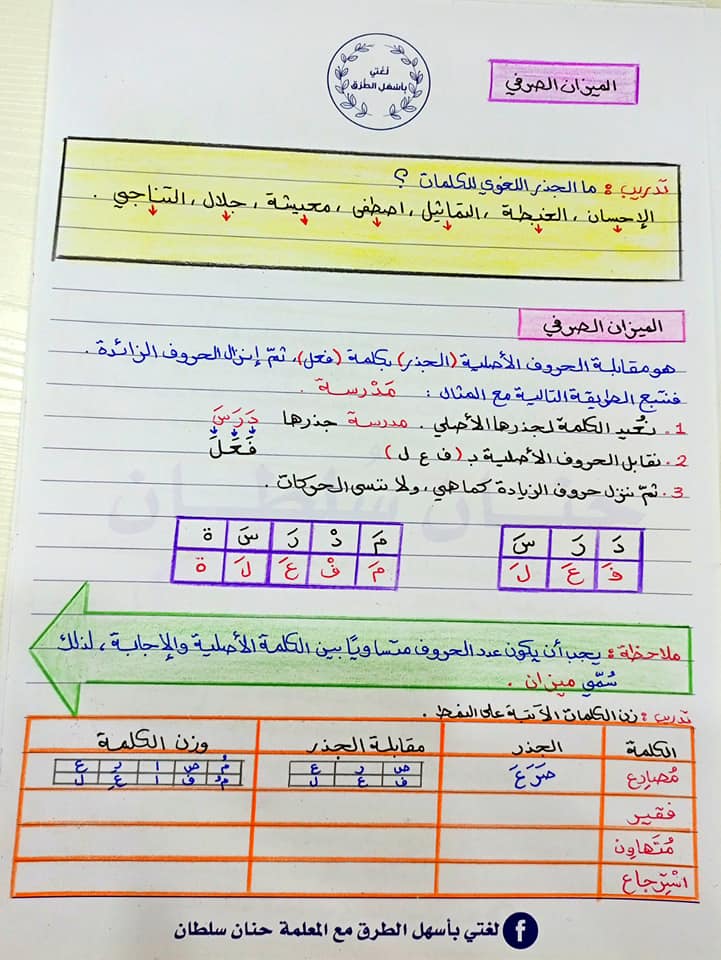 لغتي
بأسهل الطرق
الميزان الصرفي
تدريب : ما الجذر اللغوي للكلمات ؟
الإحسان ، الغبطة ، التماثيل ، اصطفى ، معيشة ، جلال ، التناجي .
الميزان الصرفي
هو مقابلة الحروف الأصلية (الجذر) بكلمة (فعل)، ثمّ إنزال الحروف الزائدة .
فنتبع الطريقة التالية مع المثال : مَدْرسة .
1. نُعيد الكلمة لجذرها الأصلي . مدرسة جذرها دَرَسَ
2. نقابل الحروف الأصلية بـ (ف ع ل) فَعَلَ
3. ثمّ ننزل حروف الزيادة كما هي ، ولا ننسى الحركات .
دَ رَ سَ
فَ عَ لَ
مَ دْ رَ سَ ة
مَ فْ عَ لَ ة
حنان سُلطان
ملاحظة : يجب أن يكون عدد الحروف متساويًا بين الكلمة الأصلية والإجابة ، لذلك
سُمّي ميزان .
تدريب : زن الكلمات الآتية على النمط .
الكلمة الجذر مقابلة الجذر وزن الكلمة
مُصارِع صَرَعَ ص ر ع مُ ص ا رِ ع
ف ع ل مُ ف ا عِ ل
فقير
مُتَهاوِن
اسْتِرجاع
لغتي بأسهل الطرق مع المعلمة حنان سلطان